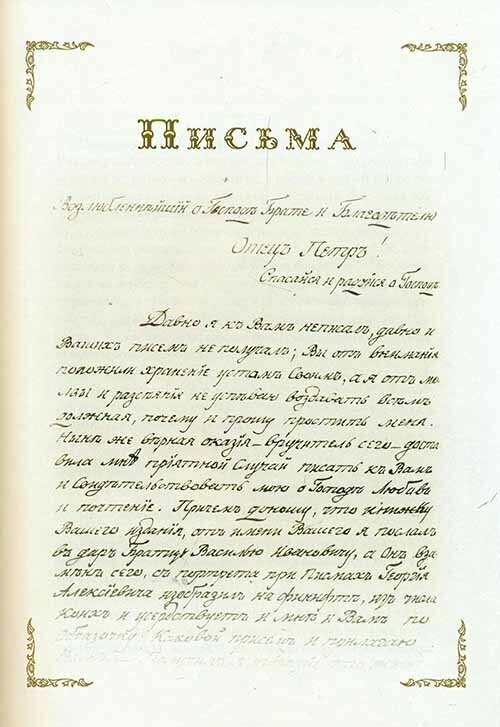 Письма
Возлюбленнѣйшій о Господѣ Брате и Благодѣтелю
Отецъ Петръ!
Спасайся и радуйся о Господѣ
Давно я къ Вамъ неписалъ, давно и
Вашихъ писемъ неполучалъ; Вы отъ вниманія
положили храненіе устамъ Своимъ, а я отъ мол
вы и разсѣянія не успѣваю воздавать всѣмъ
должная, почему и прошу простить меня.
Нынѣ же вѣрная оказія – вручитель сего – доста
вила мнѣ пріятной Случай писать къ Вамъ
и Свидѣтельствовать мою о Господѣ Любовь
и почтеніе. Причемъ доношу, что книжку
Вашего изданія, отъ имени Вашего я послалъ
въ даръ Братцу Василью Ивановичу, а Онъ вза
мѣнъ сего, съ портрета при Писмахъ Георгія
Алексѣевича изобразилъ на финифтѣ, изъ числа
коихъ и усердствуетъ и мнѣ и Вамъ по
образочку. Каковой при семъ и прилагаю